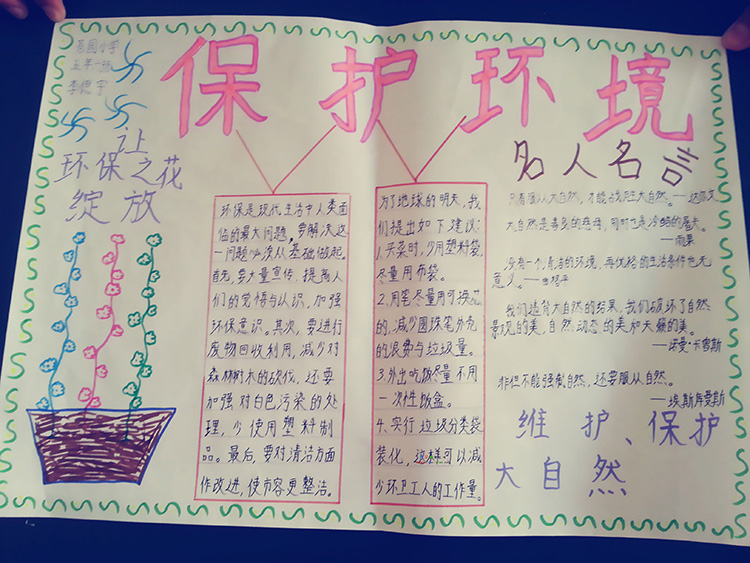 保护环境
小学
五年一班
李德宇
让
环保之花
绽放
环保是现代生活中人类面
临的最大问题，要解决这
一问题必须从基础做起。
首先，要大量宣传，提高人
们的觉悟与认识，加强
环保意识。其次，要进行
废物回收利用，减少对
森林树木的砍伐，还要
加强对白色污染的处
理，少使用塑料制
品。最后，要对清洁方面
作改进，使市容更整洁。
为了地球的明天，我
们提出如下建议：
1.买菜时，少用塑料袋
尽量用布袋。
2.用笔尽量用可换芯
的，减少圆珠笔外壳
的浪费与垃圾量。
3.外出吃饭尽量不用
一次性饭盒。
4.实行垃圾分类袋
装化，这样可以减
少环卫工人的工作量。
名人名言
只有服从大自然，才能战胜大自然。——达尔文
大自然是善良的慈母，同时也是冷酷的屠夫。
——雨果
没有一个清洁的环境，再优裕的生活条件也无
意义。——曲格平
我们违背大自然的结果，我们破坏了自然
景观的美，自然动态的美和天籁的美。
——诺曼·卡曾斯
非但不能强制自然，还要服从自然。
——埃斯库罗斯
维护、保护
大自然